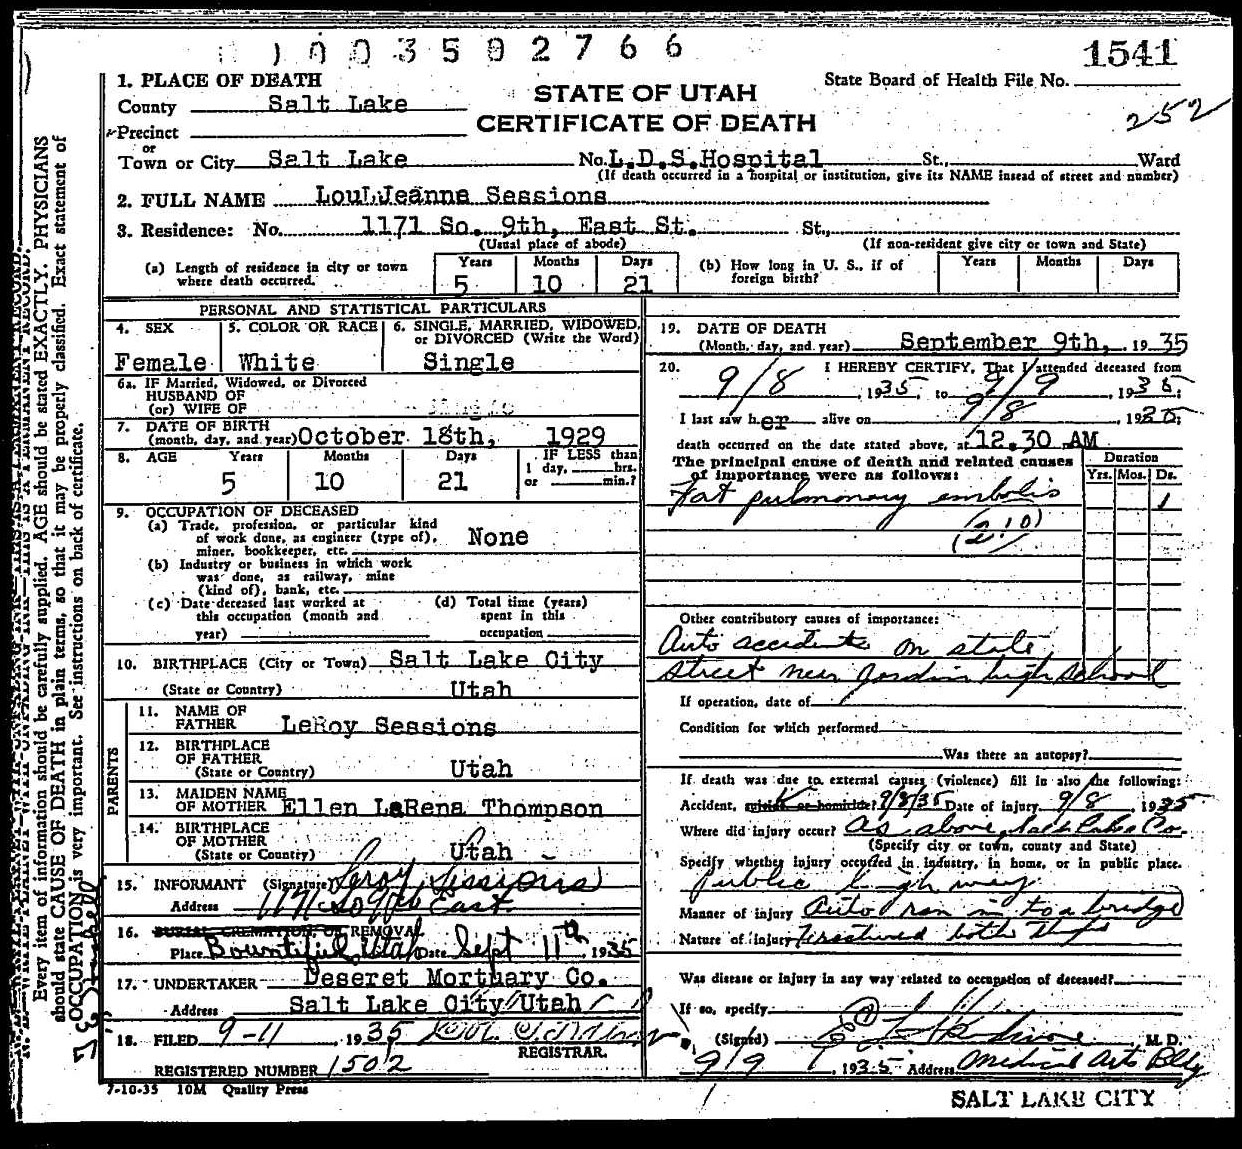 1003502766
1541
1. PLACE OF DEATH
State Board of Health File No.
County Salt Lake
STATE OF UTAH
252
Precinct
CERTIFICATE OF DEATH
or
Town or City Salt Lake No. L.D.S. Hospital St., Ward
(If death occurred in a hospital or institution, give its NAME insead of street and number)
2. FULL NAME LouJeanne Sessions
3. Residence: No. 1171 So. 9th, East St. St.,
(Usual place of abode) (If non-resident give city or town and State)
(a) Length of residence in city or town where death occurred. Years 5 Months 10 Days 21
(b) How long in U. S., if of foreign birth? Years Months Days
PERSONAL AND STATISTICAL PARTICULARS
4. SEX Female
5. COLOR OR RACE White
6. SINGLE, MARRIED, WIDOWED, or DIVORCED (Write the Word) Single
6a. IF Married, Widowed, or Divorced
HUSBAND OF
(or) WIFE OF
7. DATE OF BIRTH
(month, day, and year) October 18th, 1929
8. AGE Years 5 Months 10 Days 21 IF LESS than 1 day, hrs. or min.?
9. OCCUPATION OF DECEASED
(a) Trade, profession, or particular kind
of work done, as engineer (type of),
miner, bookkeeper, etc. None
(b) Industry or business in which work
was done, as railway, mine
(kind of), bank, etc.
(c) Date deceased last worked at
this occupation (month and
year)
(d) Total time (years)
spent in this
occupation
10. BIRTHPLACE (City or Town) Salt Lake City
(State or Country) Utah
PARENTS
11. NAME OF
FATHER LeRoy Sessions
12. BIRTHPLACE
OF FATHER
(State or Country) Utah
13. MAIDEN NAME
OF MOTHER Ellen LaRena Thompson
14. BIRTHPLACE
OF MOTHER
(State or Country) Utah
15. INFORMANT (Signature) Leroy Sessions
Address 1171 So 9th East
16. BURIAL, CREMATION, OR REMOVAL
Place Bountiful, Utah Date Sept 11th 1935
17. UNDERTAKER Deseret Mortuary Co.
Address Salt Lake City Utah
18. FILED 9-11, 1935
REGISTRAR.
REGISTERED NUMBER 1502
7-10-35 10M Quality Press
19. DATE OF DEATH
(Month, day, and year) September 9th, 1935
20. I HEREBY CERTIFY, That I attended deceased from
9/8, 1935, to 9/9, 1935.
I last saw her alive on 9/8, 1935,
death occurred on the date stated above, at 12.30 AM
The principal cause of death and related causes
of importance were as follows:
Duration
Yrs. Mos. Ds.
Fat pulmonary embolis 1
(210)
Other contributory causes of importance:
Auto accident on state
street near Jordan high school
If operation, date of
Condition for which performed
Was there an autopsy?
If death was due to external causes (violence) fill in also the following:
Accident, suicide or homicide? 9/8/35 Date of injury 9/8, 1935
Where did injury occur? As above, Salt Lake Co.
(Specify city or town, county and State)
Specify whether injury occurred in industry, in home, or in public place.
Public highway
Manner of injury Auto ran into a bridge
Nature of injury Fractured both thighs
Was disease or injury in any way related to occupation of deceased?
If so, specify
(Signed) M. D.
9/9, 1935 Address Medical Arts Bldg
SALT LAKE CITY
Every item of information should be carefully supplied. AGE should be stated EXACTLY. PHYSICIANS
should state CAUSE OF DEATH in plain terms, so that it may be properly classified. Exact statement of
OCCUPATION is very important. See instructions on back of certificate.